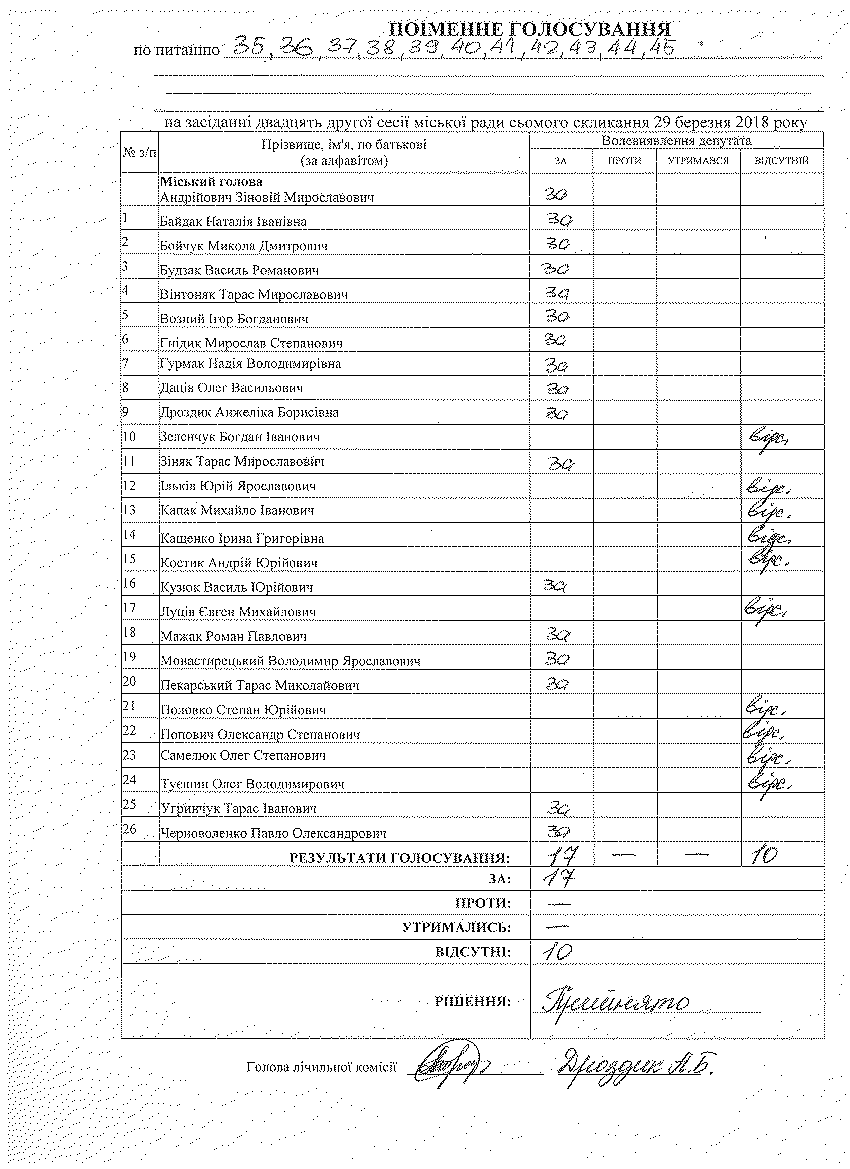 ПОІМЕННЕ ГОЛОСУВАННЯ
по питанню 35, 36, 37, 38, 39, 40, 41, 42, 43, 44, 45
на засіданні двадцять другої сесії міської ради сьомого скликання 29 березня 2018 року
№ з/п Прізвище, ім'я, по батькові (за алфавітом) Волевиявлення депутата
ЗА ПРОТИ УТРИМАВСЯ ВІДСУТНІЙ
Міський голова
Андрійович Зіновій Мирославович за
1 Байдак Наталія Іванівна за
2 Бойчук Микола Дмитрович за
3 Будзак Василь Романович за
4 Вінтоняк Тарас Мирославович за
5 Возний Ігор Богданович за
6 Гнідик Мирослав Степанович за
7 Гурмак Надія Володимирівна за
8 Даців Олег Васильович за
9 Дроздик Анжеліка Борисівна за
10 Зеленчук Богдан Іванович відс.
11 Зіняк Тарас Мирославович за
12 Ільків Юрій Ярославович відс.
13 Капак Михайло Іванович відс.
14 Кащенко Ірина Григорівна відс.
15 Костик Андрій Юрійович відс.
16 Кузюк Василь Юрійович за
17 Луців Євген Михайлович відс.
18 Мажак Роман Павлович за
19 Монастирецький Володимир Ярославович за
20 Пекарський Тарас Миколайович за
21 Половко Степан Юрійович відс.
22 Попович Олександр Степанович відс.
23 Самелюк Олег Степанович відс.
24 Туєшин Олег Володимирович відс.
25 Угринчук Тарас Іванович за
26 Черноволенко Павло Олександрович за
РЕЗУЛЬТАТИ ГОЛОСУВАННЯ: 17 — — 10
ЗА: 17
ПРОТИ: —
УТРИМАЛИСЬ: —
ВІДСУТНІ: 10
РІШЕННЯ: Прийнято
Голова лічильної комісії Дроздик А.Б.